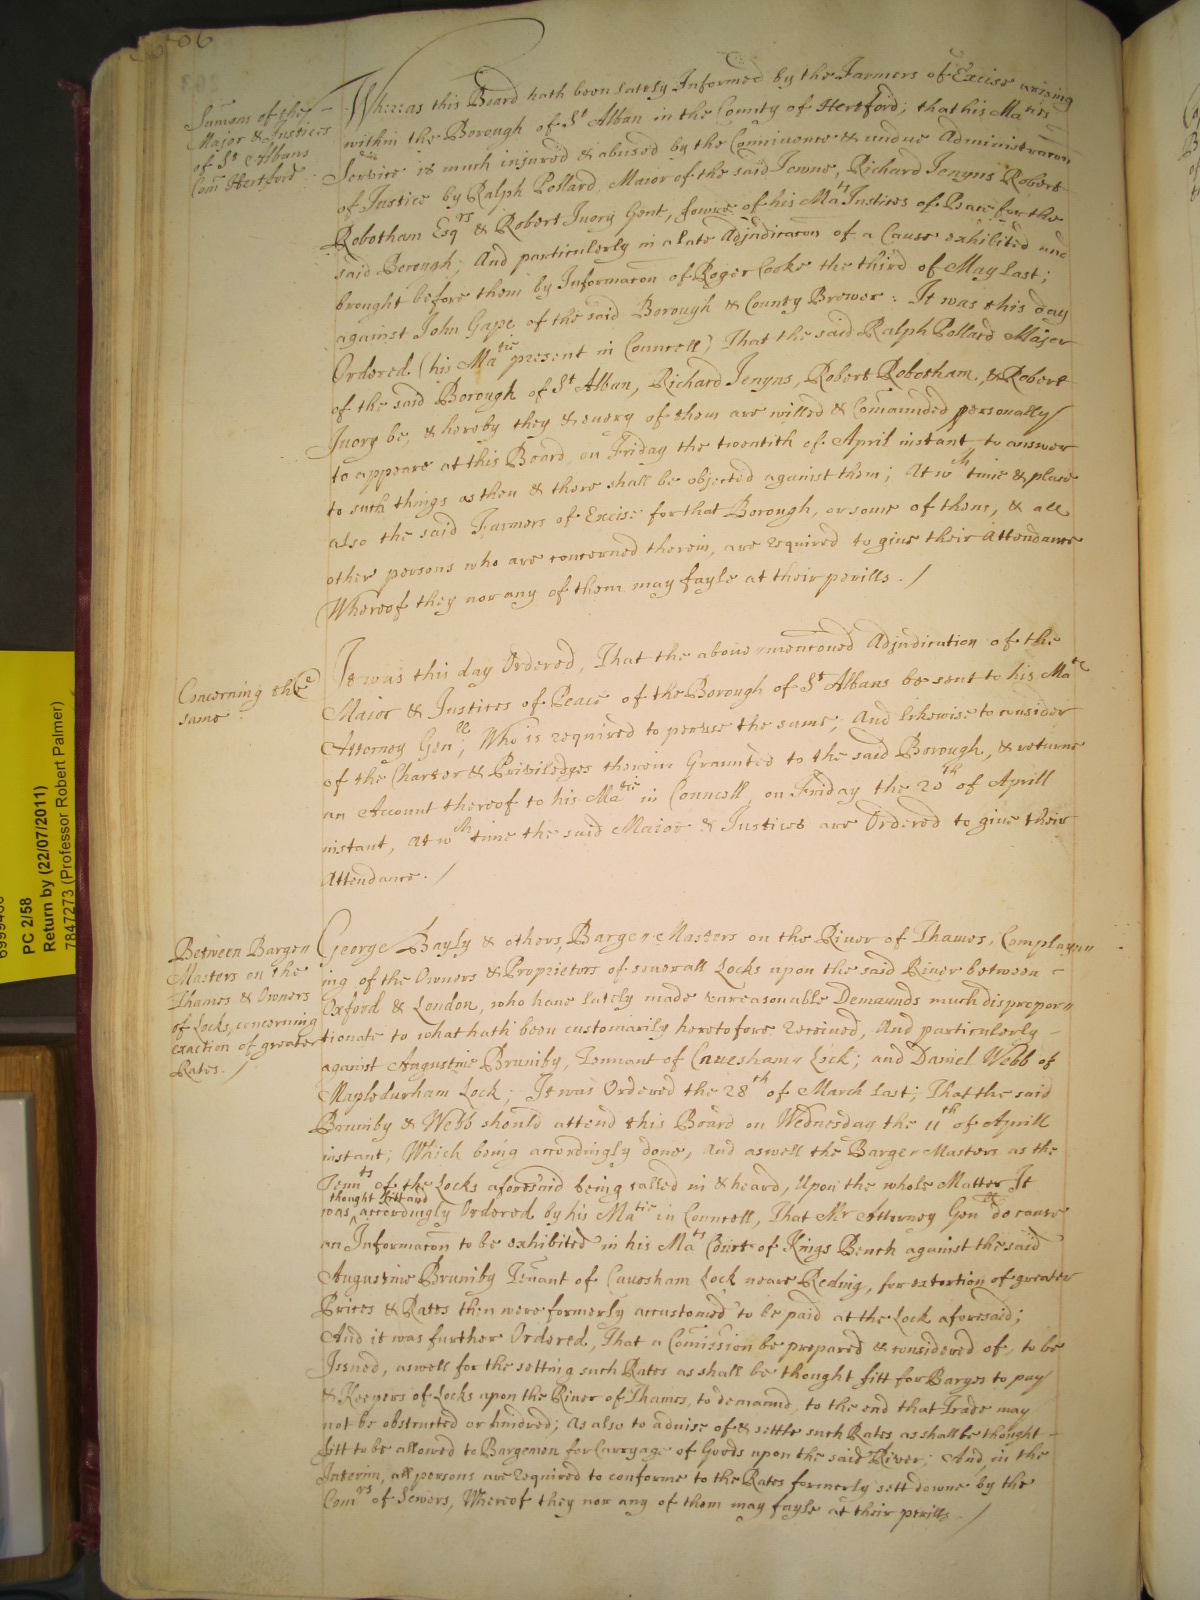 206
Sum̄ons of the
Major & Justices
of St Albans
Com̄ Hertford
Whereas this Board hath been lately Informed by the Farmers of Excise arising
within the Borough of St Alban in the County of Hertford; that his Maties
Service is much injured & abused by the Connivence & undue Administrac̄on
of Justice by Ralph Pollard, Maior of the said Towne, Richard Jenyns Robert
Robotham Esqrs & Robert Ivory Gent, fowre of his Mats Justices of Peace for the
said Borough; And particulerly in a late Adjudicac̄on of a Cause exhibited and
brought before them by Informac̄on of Roger Cooke the third of May last;
against John Gape of the said Borough & County Brewer: It was this day
Ordered (his Matie present in Councell) That the said Ralph Pollard Major
of the said Borough of St Alban, Richard Jenyns, Robert Robotham, & Robert
Ivory be, & hereby they & every of them are willed & Com̄anded personally
to appeare at this Board, on Friday the twentith of April instant, to answer
to such things as then & there shall be objected against them; At wch time & place
also the said Farmers of Excise for that Borough, or some of them, & all
other persons who are concerned therein, are required to give their Attendance
Whereof they nor any of them may fayle at their perills. /
Concerning the
same
It was this day Ordered, That the above-menc̄oned Adjudication of the
Maior & Justices of Peace of the Borough of St Albans be sent to his Mats
Attorney Genll, Who is required to peruse the same, And likewise to consider
of the Charter & Priviledges therein Graunted to the said Borough, & returne
an Account thereof to his Matie in Councell, on Friday the 20th of Aprill
instant, At wch time the said Maior & Justices are Ordered to give their
Attendance. /
Between Barge-
Masters on the
Thames & Owners
of Locks, concerning
exaction of greater
Rates. /
George Bayly & others, Barge-Masters on the River of Thames, Complayn-
ing of the Owners & Proprietors of severall Locks upon the said River between
Oxford & London, who have lately made unreasonable Demaunds much dispropor-
tionate to what hath been customarily heretofore received, And particulerly
against Augustine Brumby, Tennant of Cavesham Lock; and Daniel Webb of
Mapledurham Lock; It was Ordered the 28th of March last; That the said
Brumby & Webb should attend this Board on Wednesday the 11th of Aprill
instant; Which being accordingly done, And aswell the Barge-Masters as the
Tennts of the Locks aforesaid being called in & heard, Upon the whole Matter It
thought fitt and
was accordingly Ordered by his Matie in Councell, That Mr Attorney Genll do cause
an Informac̄on to be exhibited in his Mats Court of Kings Bench against the said
Augustine Brumby Tenant of Cavesham Lock neare Reding, for extortion of greater
Prices & Rates then were formerly accustomed to be paid at the Lock aforesaid;
And it was further Ordered, That a Com̄ission be prepared & considered of, to be
Issued, aswell for the setting such Rates as shall be thought fitt for Barges to pay
& Keepers of Locks upon the River of Thames, to demaund, to the end that Trade may
not be obstructed or hindred; as also to advise of & settle such Rates as shall be thought
fitt to be allowed to Bargemen for Carryage of Goods upon the said River; And, in the
Interim, all persons are required to conforme to the Rates formerly sett downe by the
Comrs of Sewers, Whereof they nor any of them may fayle at their perills. /
PC 2/58
Return by (22/07/2011)
7847273 (Professor Robert Palmer)